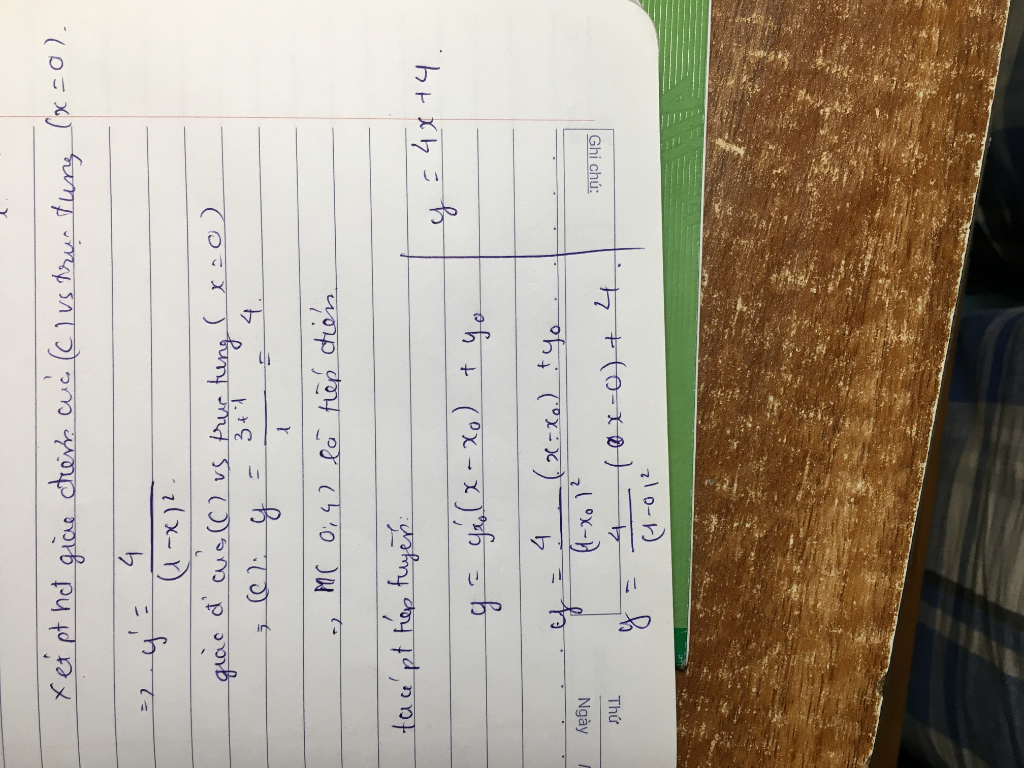 xét pt hđ giao điểm của (C) vs trục tung (x = 0).
=> y' = 4 / (1-x)².
giao đ' của (C) vs trục tung ( x = 0 )
(C): y = 3+1 / 1 = 4.
=> M( 0; 4 ) là tiếp điểm
ta có pt tiếp tuyến:
y = y'x₀ (x - x₀) + y₀
y = 4 / (1-x₀)² (x - x₀) + y₀
y = 4 / (1-0)² (x - 0) + 4.
y = 4x + 4.
Ghi chú:
Thứ
Ngày